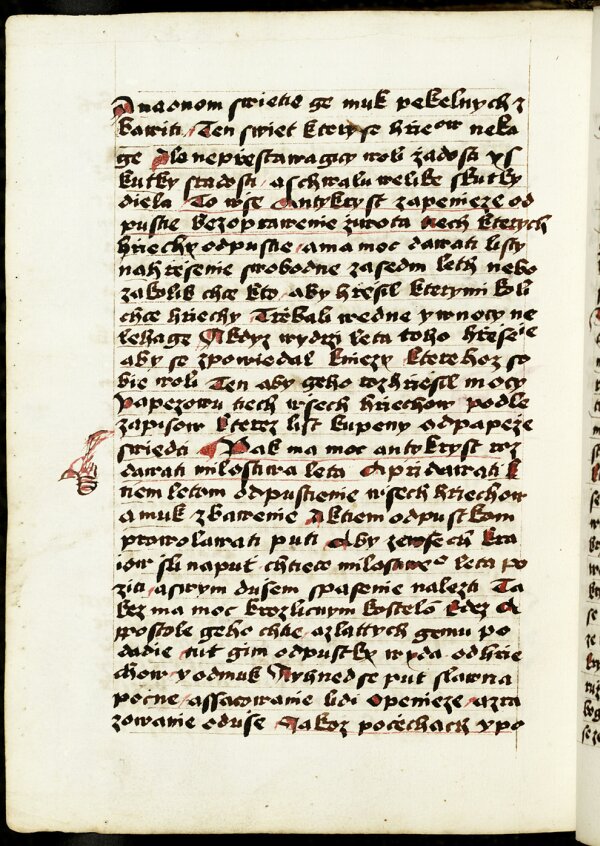 A naonom swietie ge muk pekelnych z
bawiti / Ten swiet ktery se hrieow neka
ge A lo neprestawagicy woli zadosti ys
kutky sladosti / a schwalu welike skutky
diela To wse Antykryst zapenieze od
pustie bezoprawenie ziwota tiech kterych
hriechy odpustie / ama moc dawati listy
nahrisenie swobodne zasedm leth nebo
zakolik chce kto / aby hresil kterymi koli
chce hriechy Trwali wedne ywnocy ne
lehage A kdyz wydrzi leta toho hrese
aby se zpowiedal kniezy kterehoz so
bie woli Ten aby geho rozhriesil mocy
Papezowu tiech wsech hriechow podle
zapisow kterez list kupeny odpapeze
swiedci A Pak ma moc antykryst roz
dawati milostiwa leta A pridawati k
niem letom odpustienie wsech hriechow
a muk zbawenie A ktiem odpustkom
prowolawati puti A by zewsech kra
iow sli naput chtiece milostiweo leta po
ziti / aswym dusem spasenie nalezti Ta
kez ma moc krozlicnym kostelo kdez A
postole geho chtie / azlattych gemu po
dadie nit gim odpustky wyda odhrie
chow y odmuk A yhned se put slawna
pocne / assacowanie lidi openieze / azra
zowanie oduse A akoz pociechach ypo